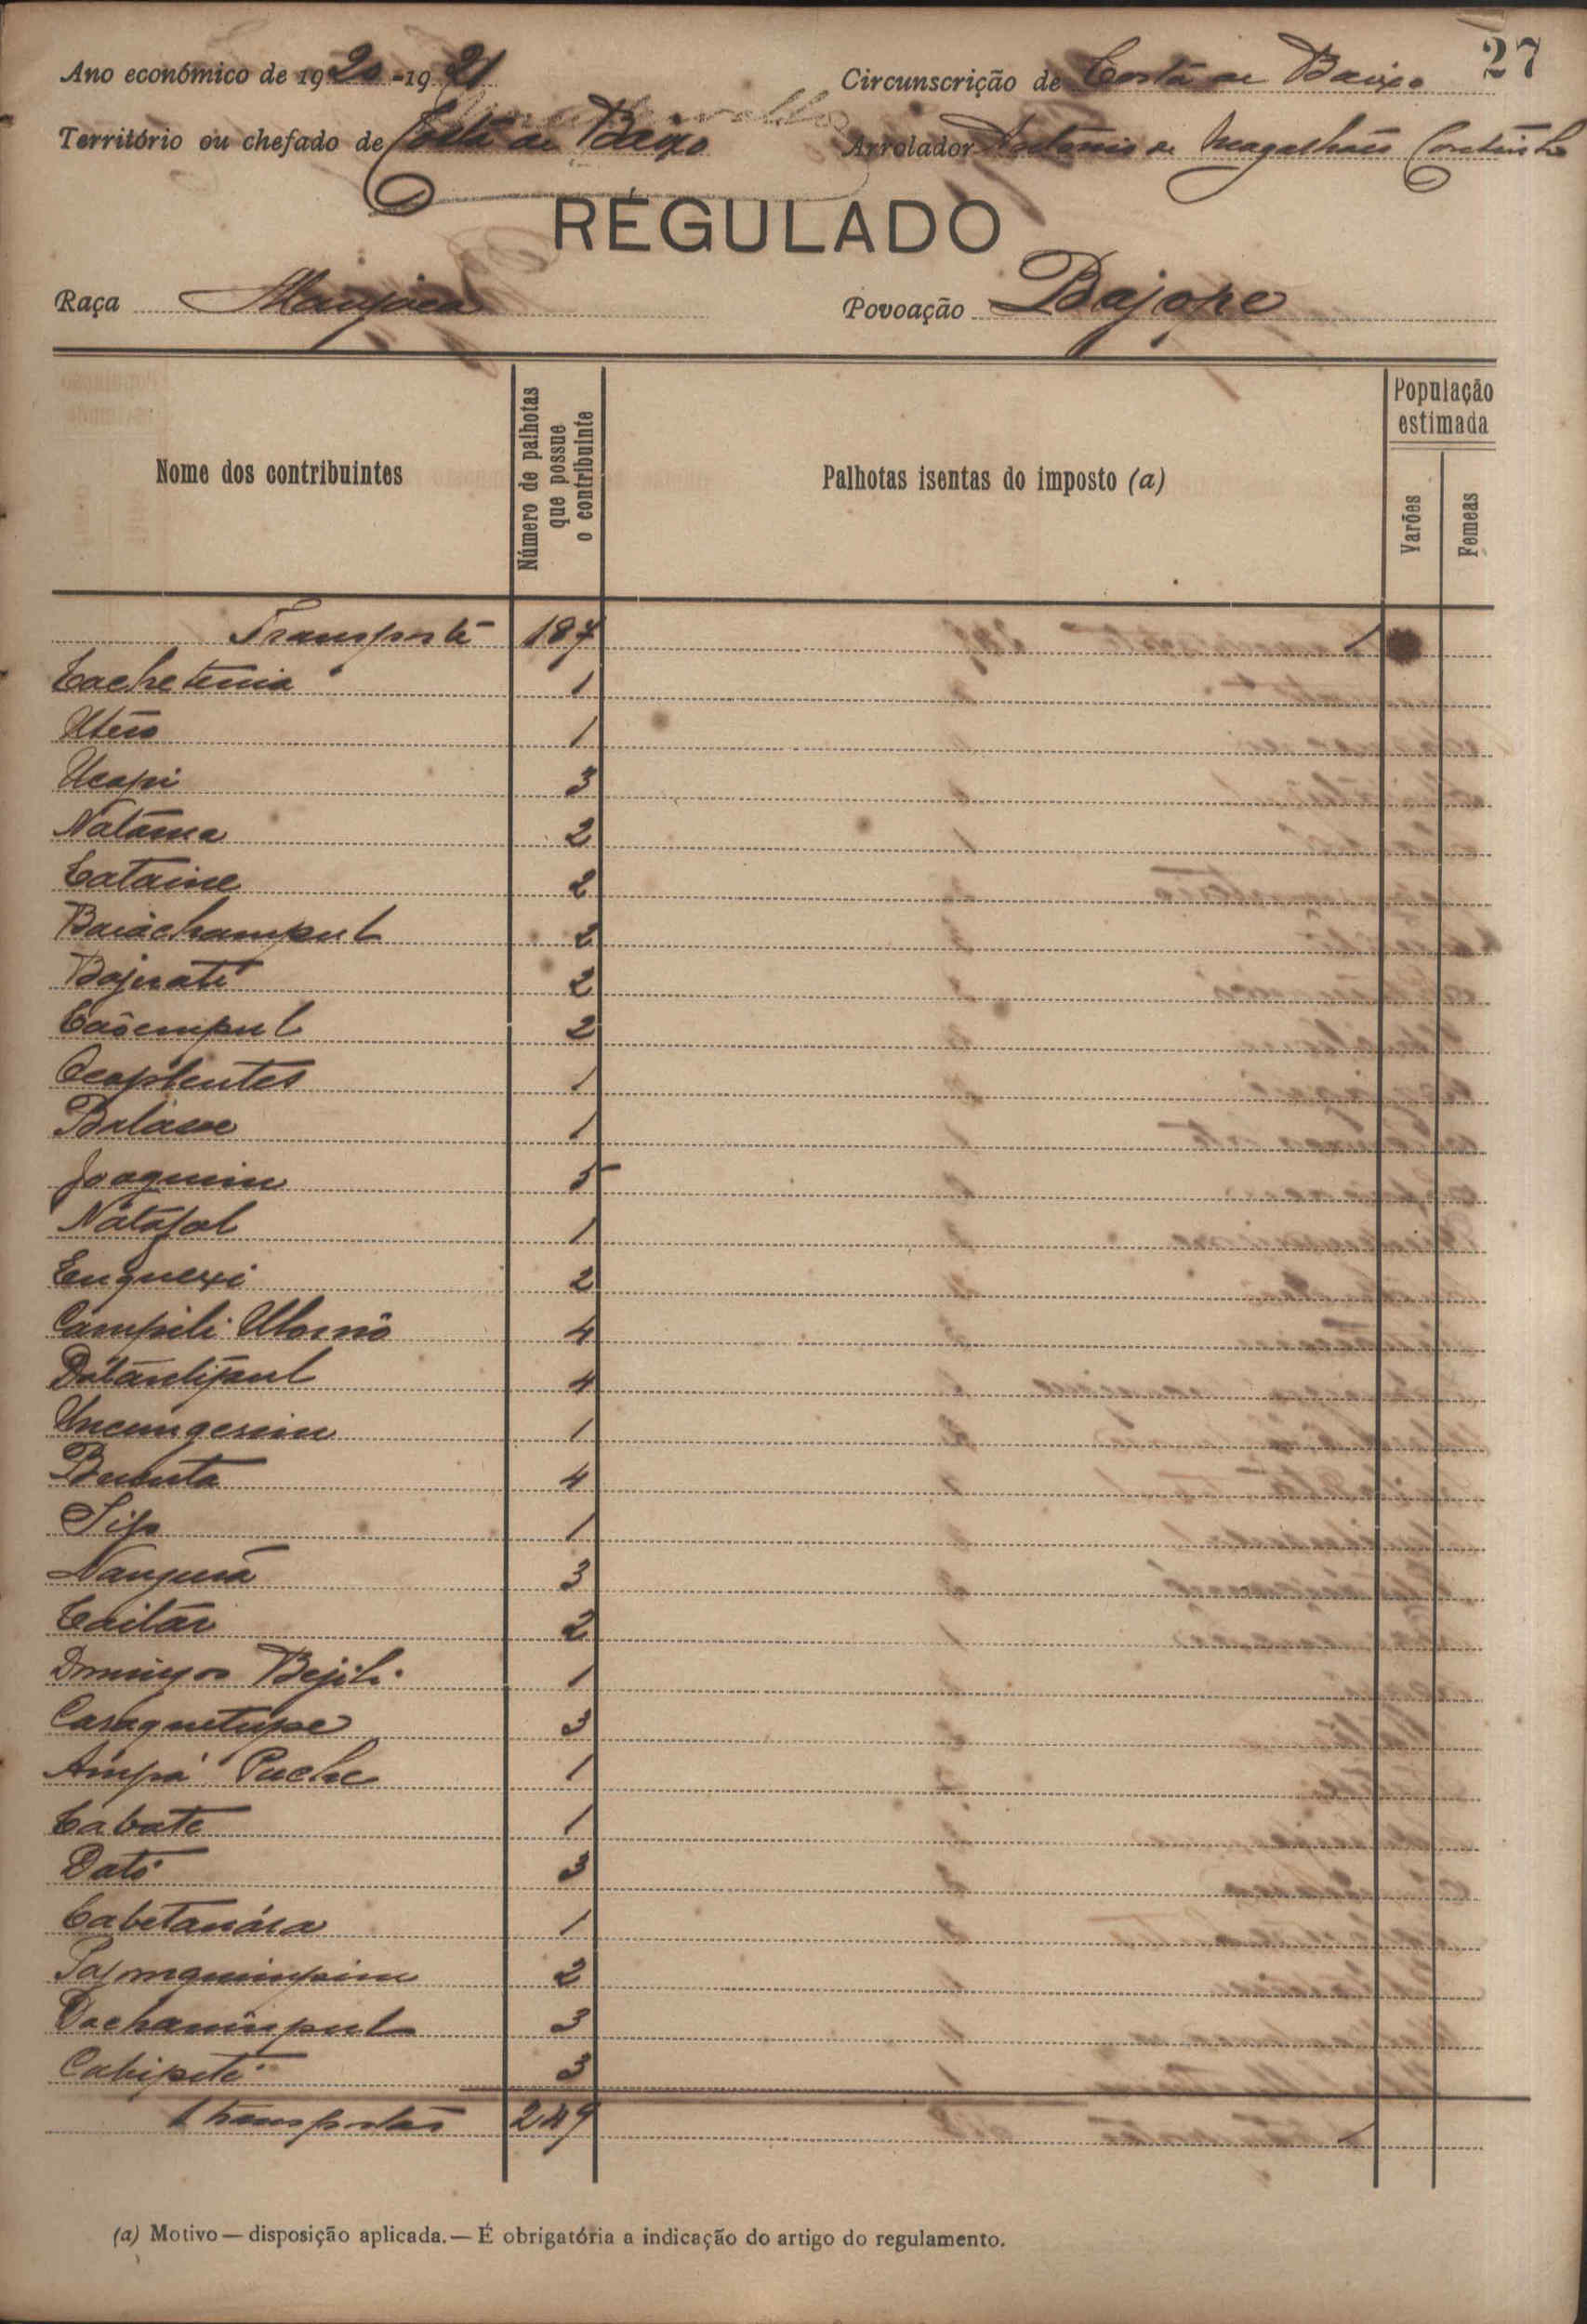 27
Ano económico de 1920-1921 Circunscrição de Costa de Baixo
Território ou chefado de Costa de Baixo Arrolador Antonio de Magalhães Coutinho
REGULADO
Raça Manjaca Povoação Bajope
Nome dos contribuintes
Número de palhotas que possue o contribuinte
Palhotas isentas do imposto (a)
População estimada
Varões
Femeas
Transporte 187
Cachetenia 1
Uteio 1
Ucapi 3
Natama 2
Cataine 2
Baiachampul 2
Bajurate 2
Caôempul 2
Ocaplentes 1
Balaar 1
Joaquim 5
Natafal 1
Enquexi 2
Campili Utomô 4
Datantipul 4
Uncungerim 1
Bununta 4
Sip 1
Nanguiá 3
Cailar 2
Domingos Bejili 1
Casaquetupe 3
Ampá Puche 1
Cabate 1
Dató 3
Cabetanása 1
2
Dachanimpul 3
Cabipeté 3
Transportar 249
(a) Motivo — disposição aplicada. — É obrigatória a indicação do artigo do regulamento.